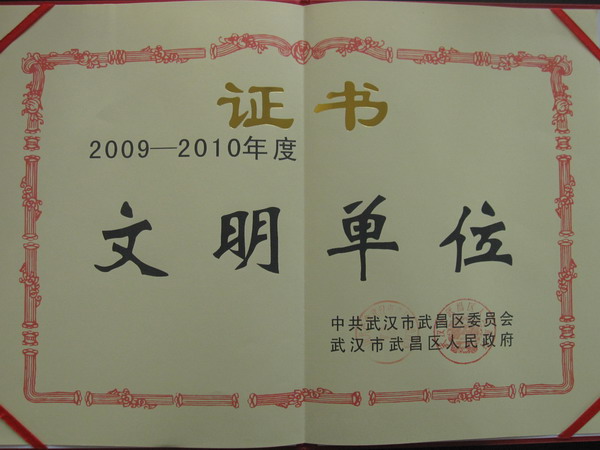 证书
2009—2010年度
文明单位
中共武汉市武昌区委员会
武汉市武昌区人民政府